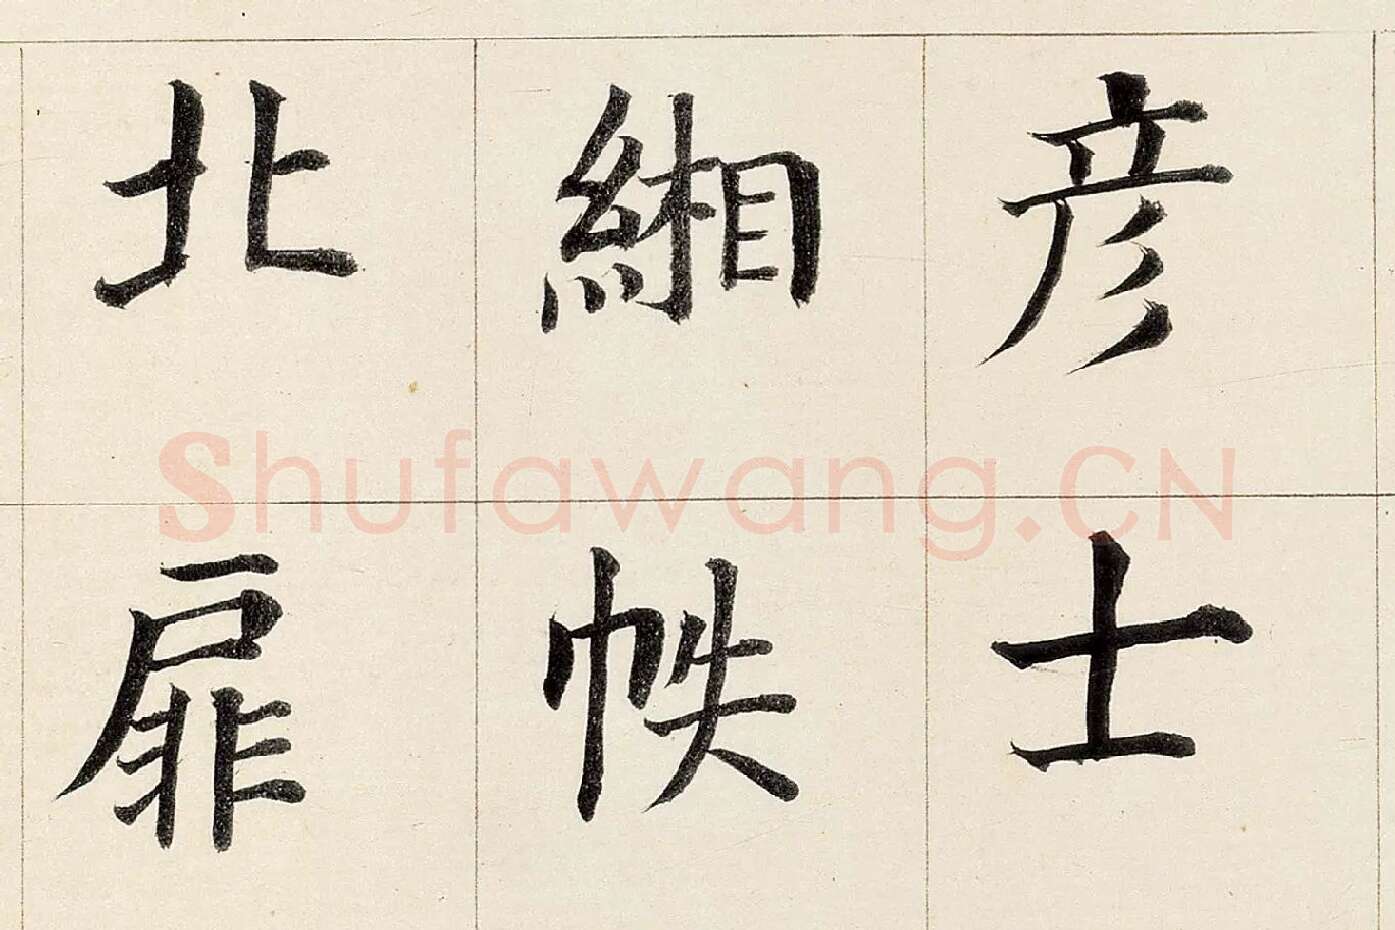 彦士
緗帙
北扉
Shufawang.CN